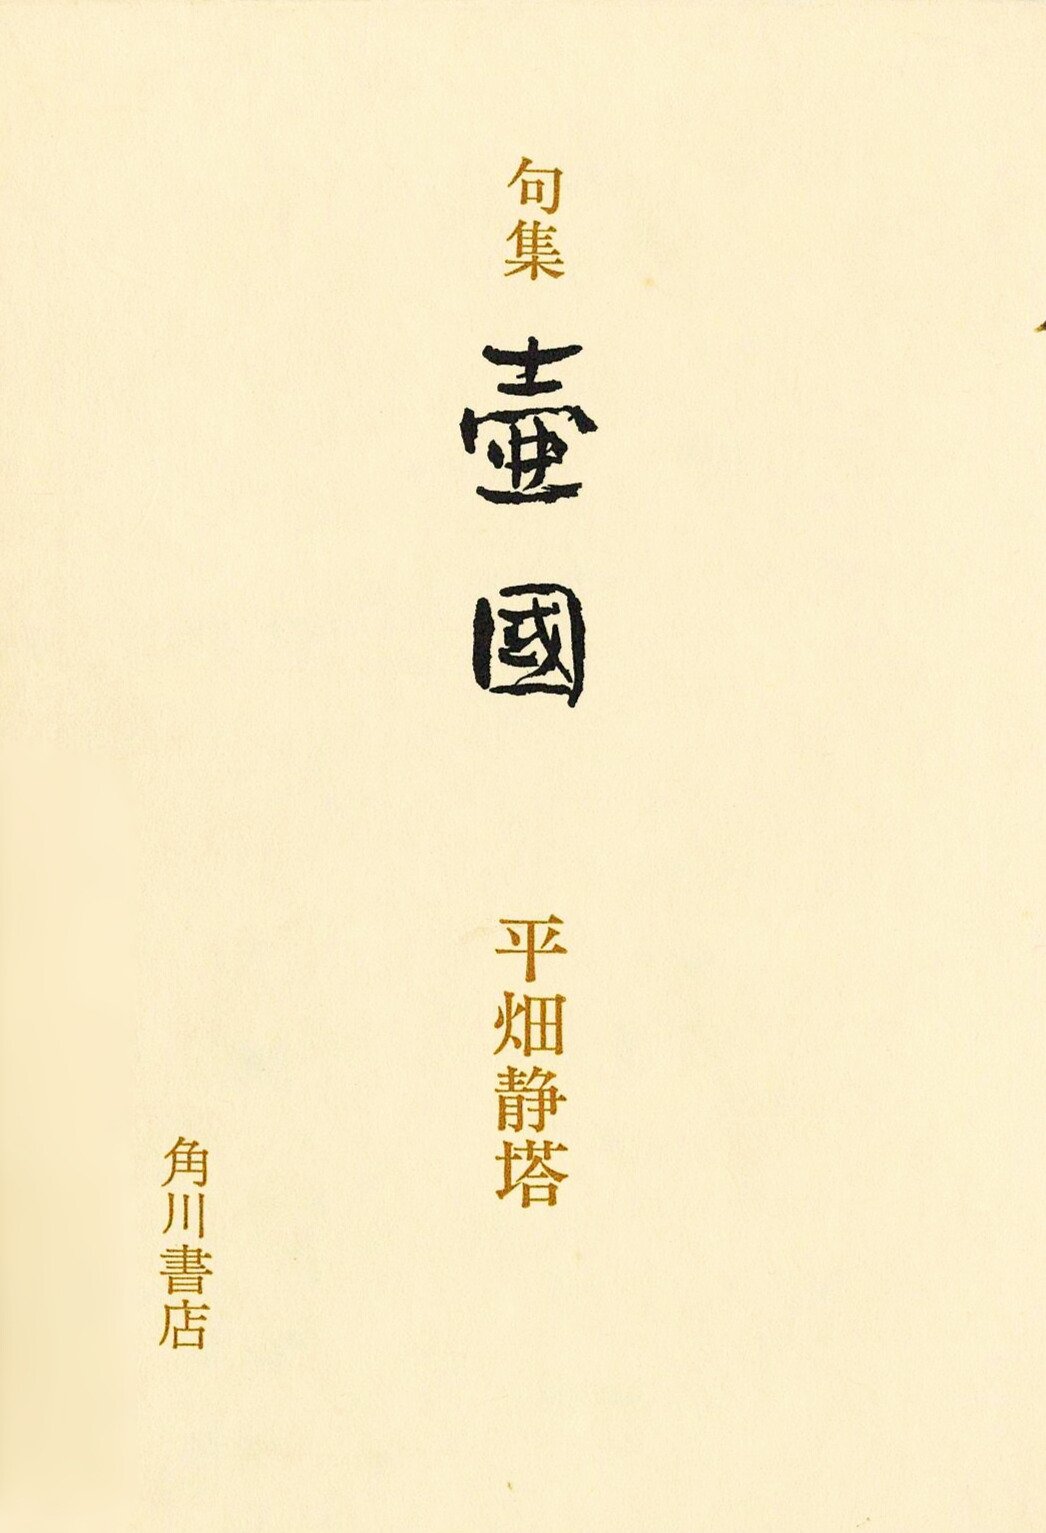 句集
壺國
平畑静塔
角川書店